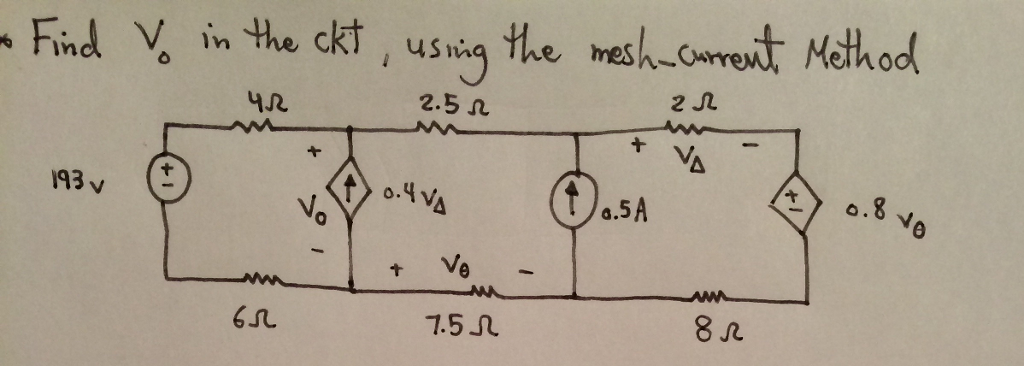 * Find V₀ in the ckt, using the mesh-current Method
4Ω 2.5Ω 2Ω
+ + VΔ -
193 v + - V₀ 0.4 VΔ 0.5A + - 0.8 vθ
- + Vθ -
6Ω 7.5Ω 8Ω